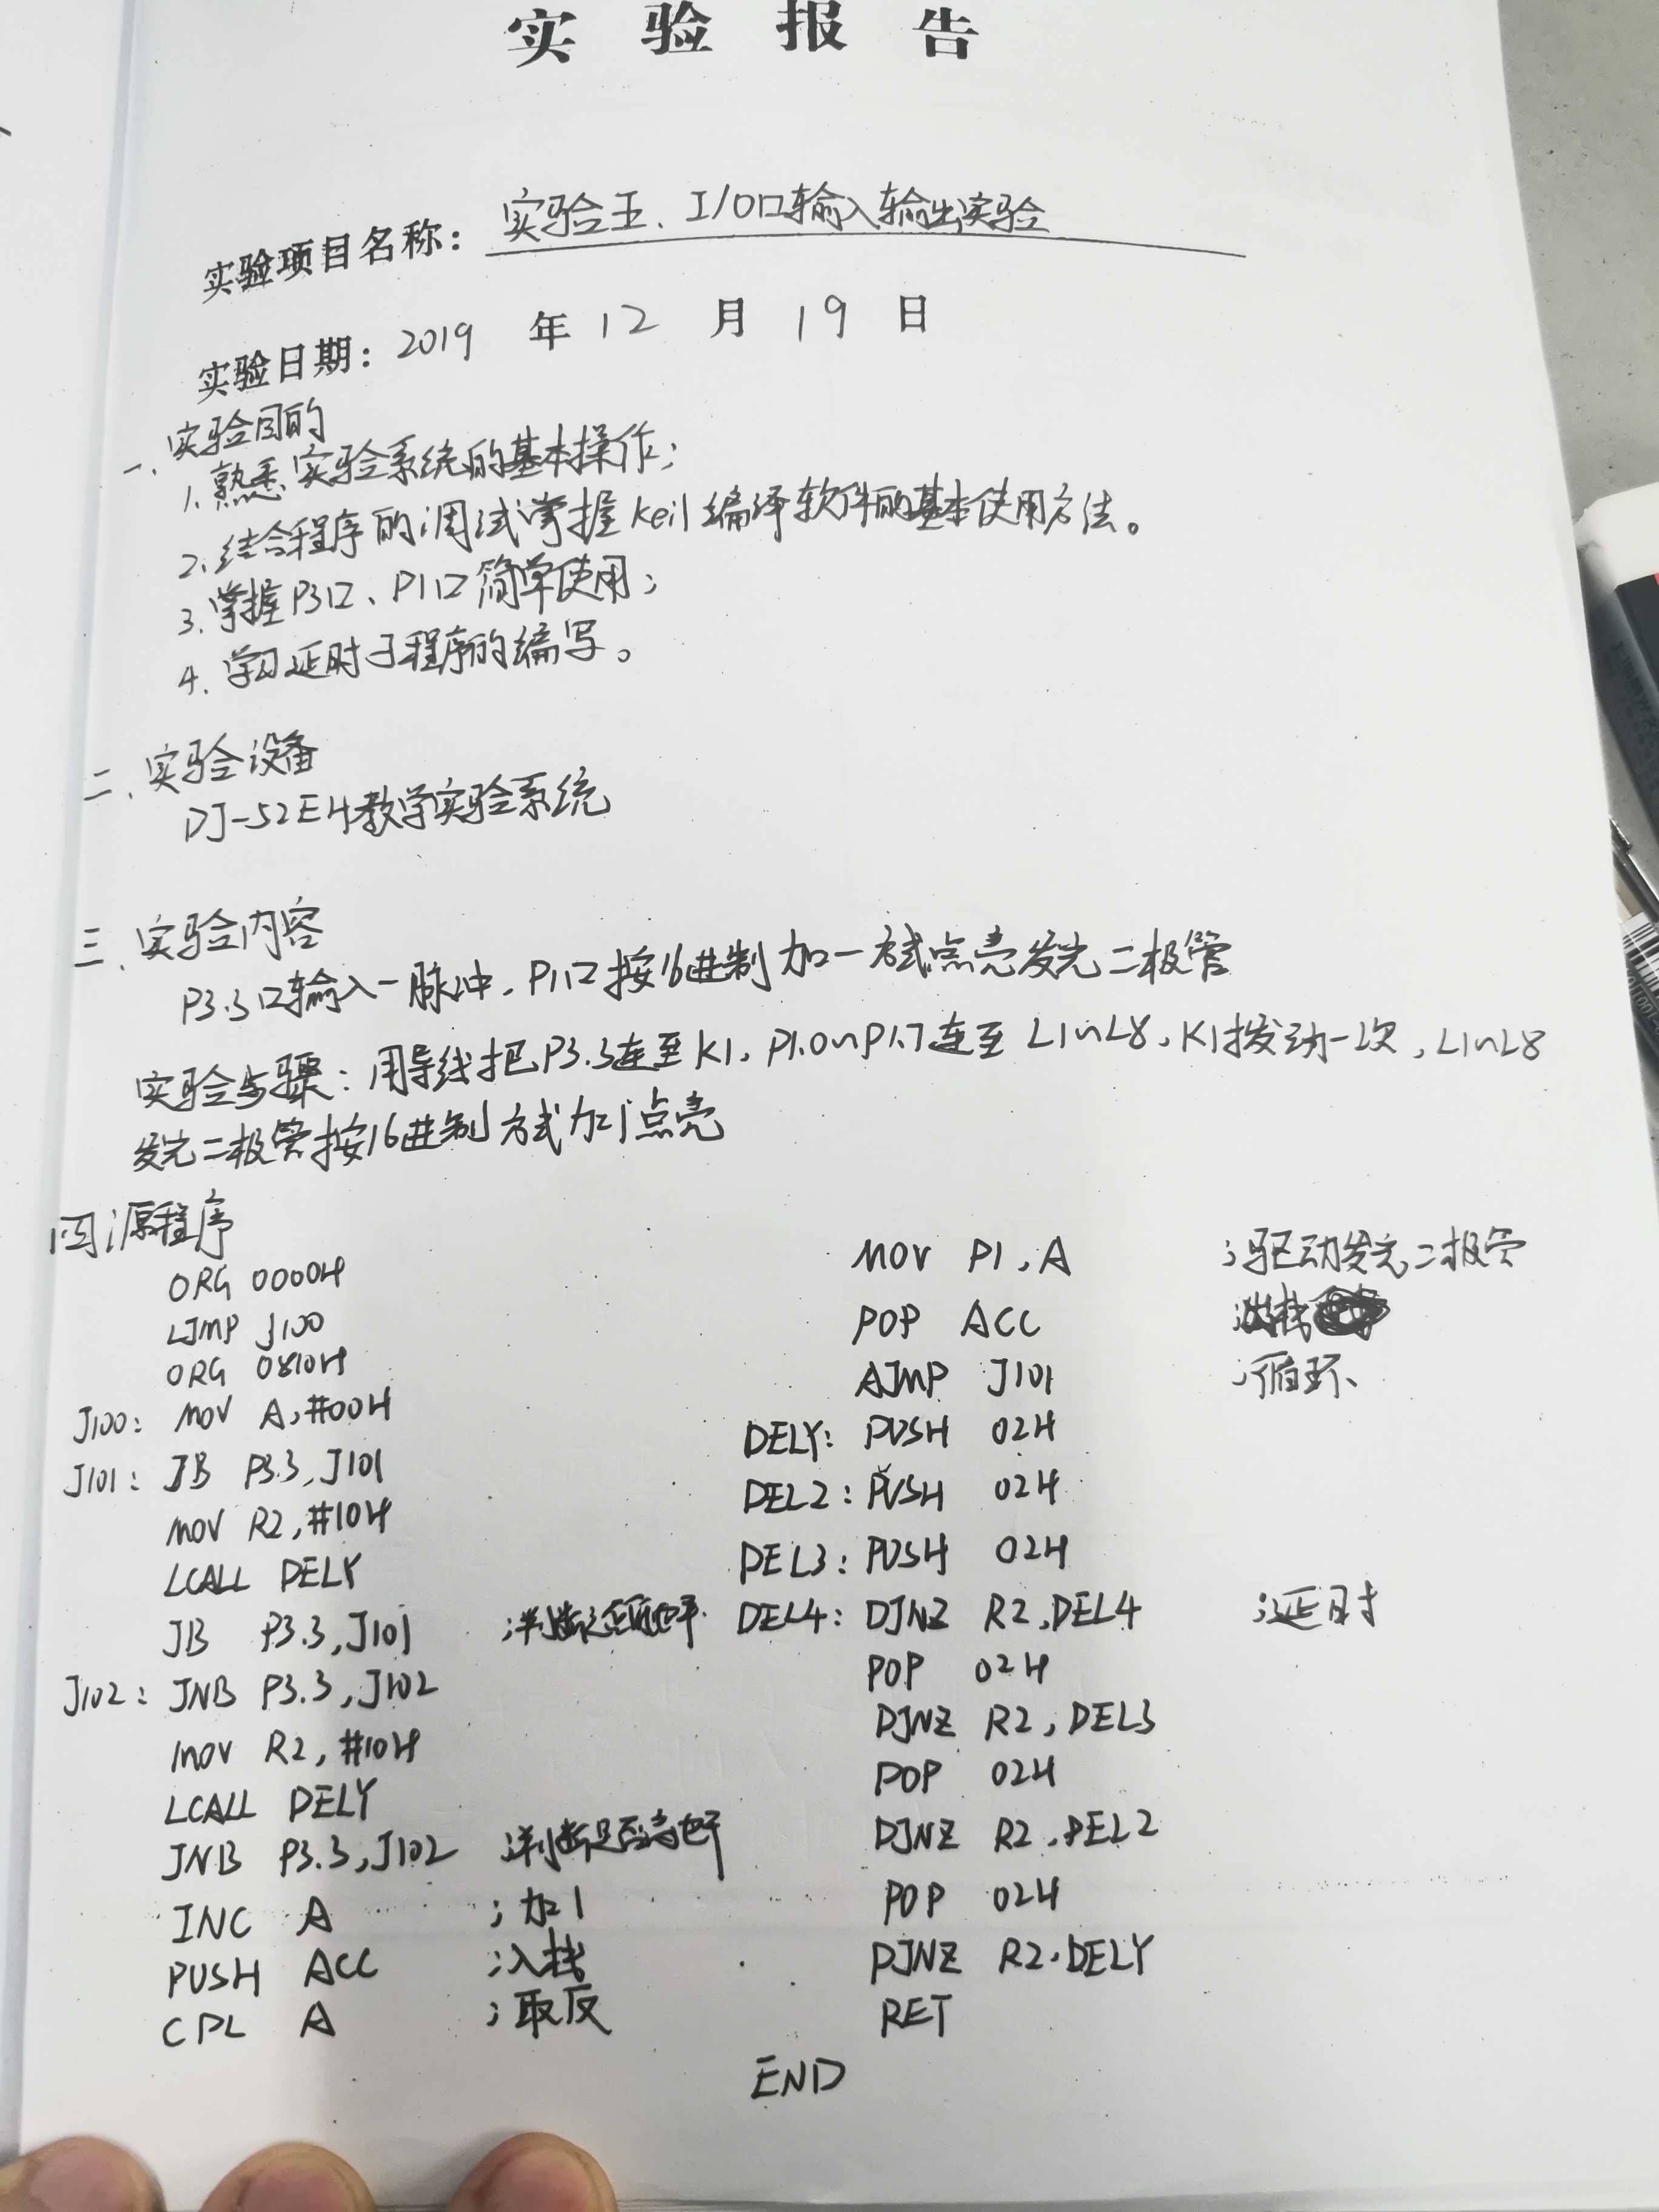 实验报告
实验项目名称：实验五、I/O口输入输出实验
实验日期：2019 年 12 月 19 日
一、实验目的
1. 熟悉实验系统的基本操作；
2. 结合程序的调试掌握keil编译软件的基本使用方法。
3. 掌握P3口、P1口简单使用；
4. 学习延时子程序的编写。
二、实验设备
DJ-52EH教学实验系统
三、实验内容
P3.3口输入一脉冲，P1口按16进制加一方式点亮发光二极管
实验步骤：用导线把P3.3连至K1，P1.0~P1.7连至L1~L8，K1拨动一次，L1~L8
发光二极管按16进制方式加1点亮
四、源程序
ORG 0000H
LJMP J100
ORG 0810H
J100: MOV A,#00H
J101: JB P3.3,J101
MOV R2,#10H
LCALL DELY
JB P3.3,J101 ;判断是否低电平
J102: JNB P3.3,J102
MOV R2,#10H
LCALL DELY
JNB P3.3,J102 ;判断是否高电平
INC A ;加1
PUSH ACC ;入栈
CPL A ;取反
MOV P1,A ;驱动发光二极管
POP ACC ;出栈
AJMP J101 ;循环
DELY: PUSH 02H
DEL2: PUSH 02H
DEL3: PUSH 02H
DEL4: DJNZ R2,DEL4 ;延时
POP 02H
DJNZ R2,DEL3
POP 02H
DJNZ R2,DEL2
POP 02H
DJNZ R2,DELY
RET
END